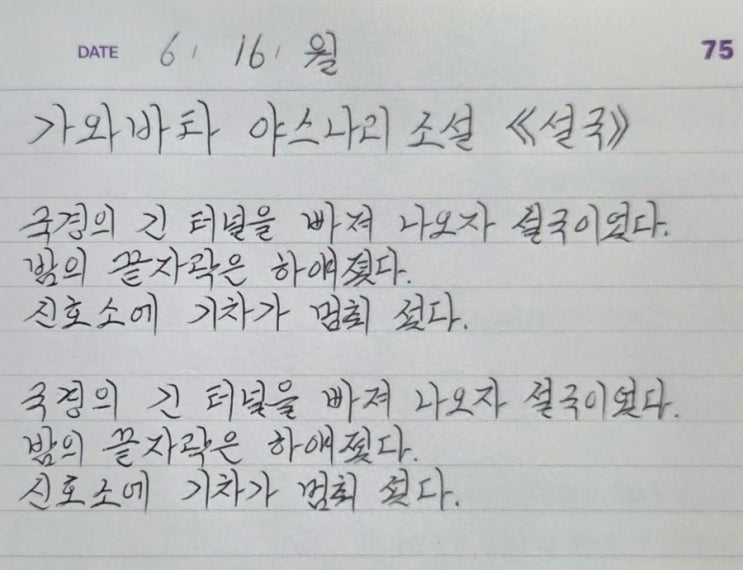 DATE 6. 16. 월 75
가와바타 야스나리 소설 《설국》
국경의 긴 터널을 빠져 나오자 설국이었다.
밤의 끝자락은 하얘졌다.
신호소에 기차가 멈춰 섰다.
국경의 긴 터널을 빠져 나오자 설국이었다.
밤의 끝자락은 하얘졌다.
신호소에 기차가 멈춰 섰다.